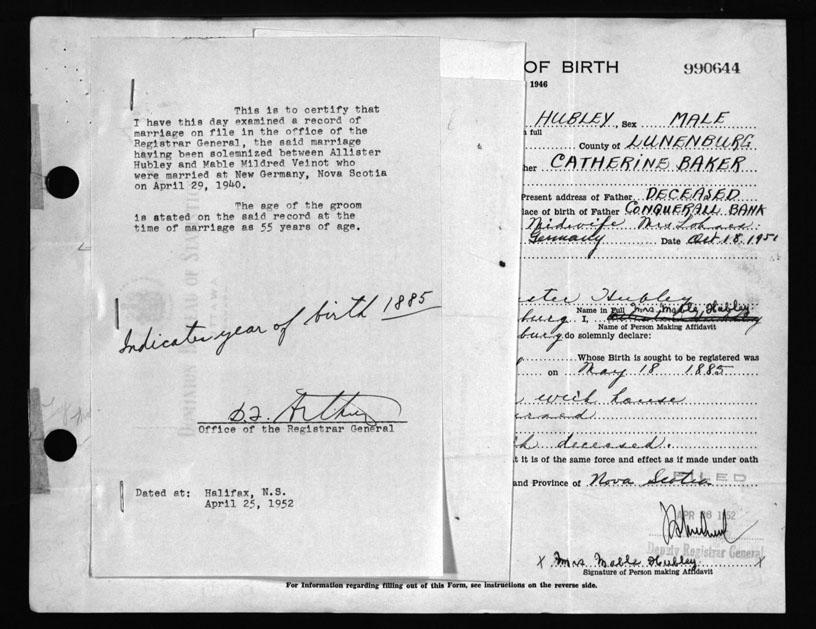 This is to certify that
I have this day examined a record of
marriage on file in the office of the
Registrar General, the said marriage
having been solemnized between Allister
Hubley and Mable Mildred Veinot who
were married at New Germany, Nova Scotia
on April 29, 1940.
The age of the groom
is stated on the said record at the
time of marriage as 55 years of age.
Indicates year of birth 1885
Office of the Registrar General
Dated at: Halifax, N.S.
April 25, 1952
OF BIRTH 990644
1946
HUBLEY, Sex MALE
full
County of LUNENBURG
her CATHERINE BAKER
Present address of Father DECEASED
lace of birth of Father CONQUERALL BANK
Midwife Mrs
Germany Date Oct 18, 1951
ster Hubley
Name in Full Mrs. Mable Hubley
burg I,
Name of Person Making Affidavit
burg do solemnly declare:
Whose Birth is sought to be registered was
on May 18 1885
house
deceased.
t it is of the same force and effect as if made under oath
and Province of Nova Scotia
FILED
APR 1952
Deputy Registrar General
X Mrs Mable Hubley X
Signature of Person making Affidavit
For Information regarding filling out of this Form, see instructions on the reverse side.